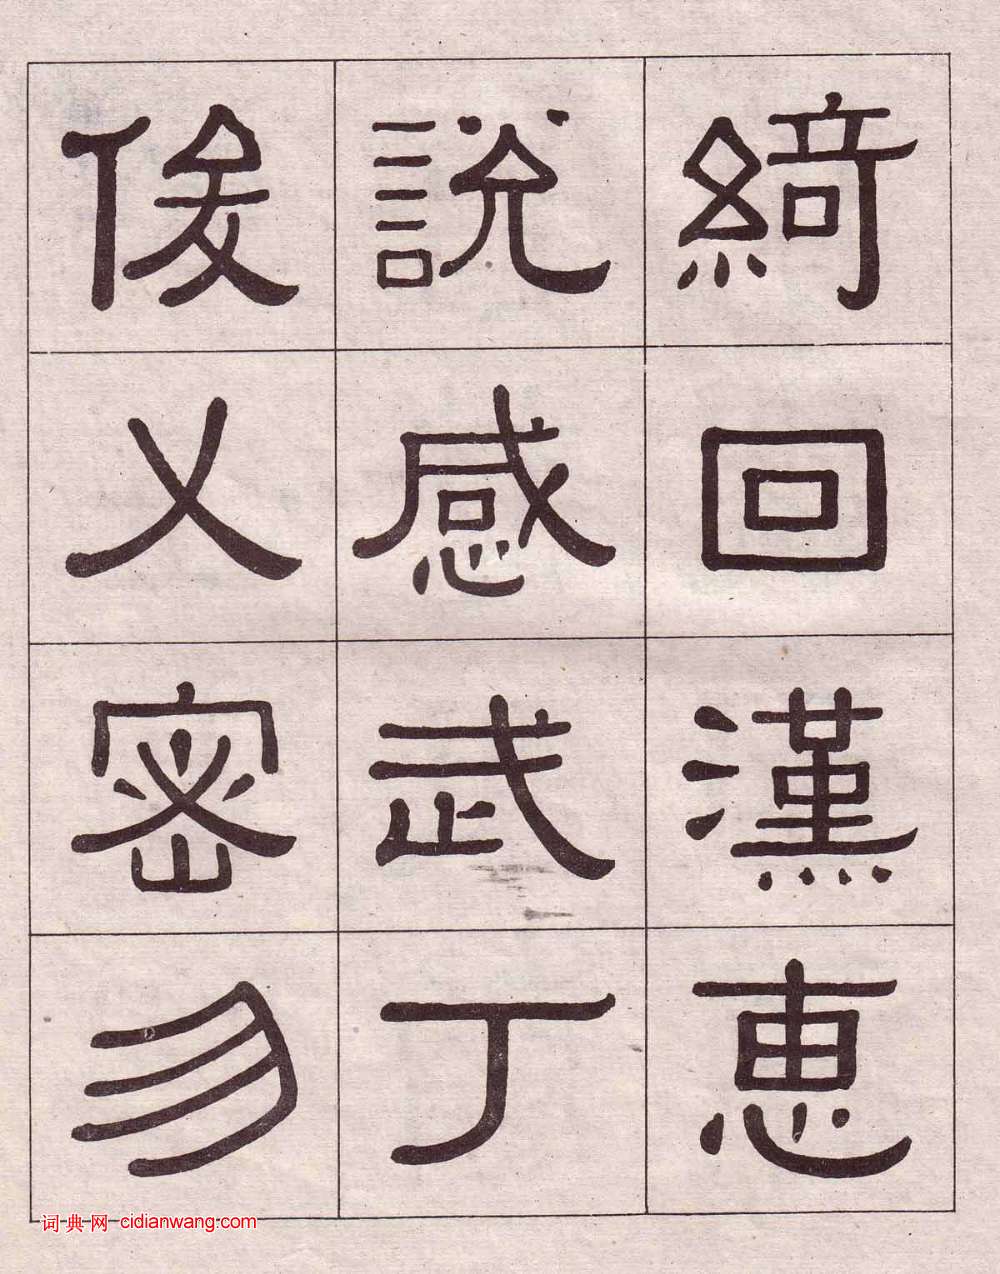 綺回漢惠
說感武丁
俊乂密勿
词典网 cidianwang.com